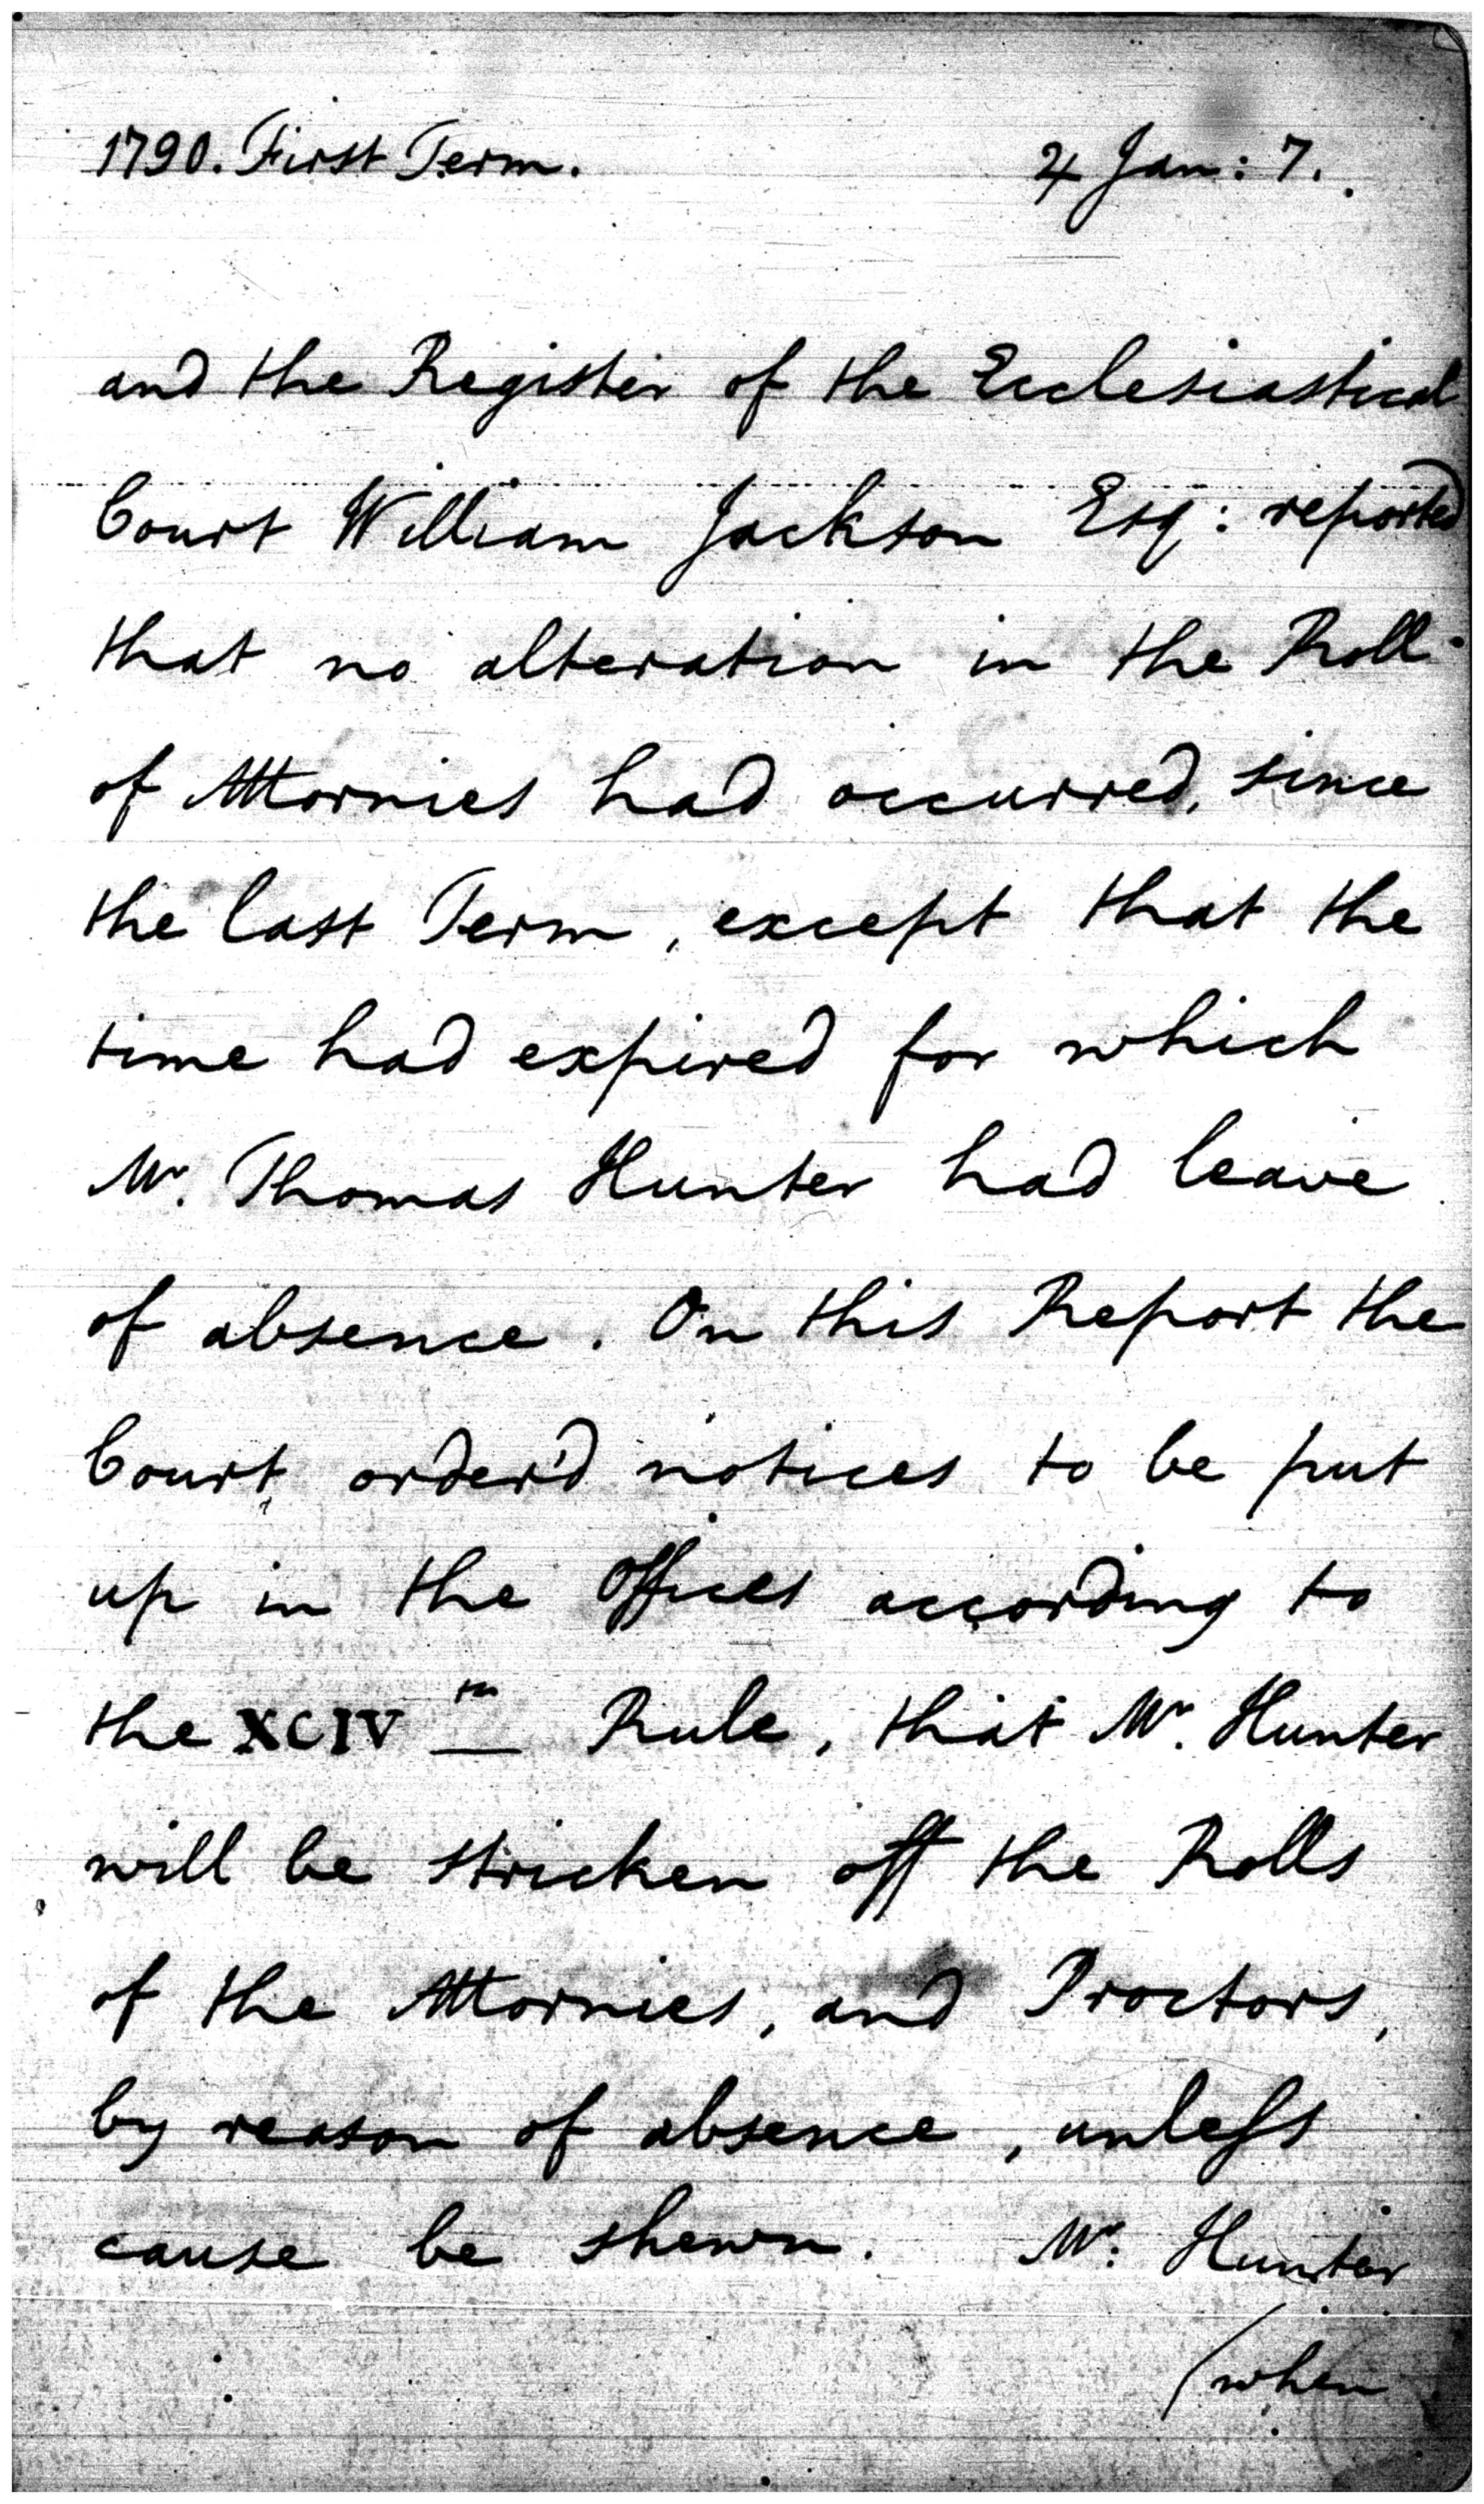 1790. First Term. ♃ Jan: 7.
and the Register of the Ecclesiastical
Court William Jackson Esq: reported
that no alteration in the Roll
of Attornies had occurred, since
the last Term, except that the
time had expired for which
Mr. Thomas Hunter had leave
of absence. On this Report the
Court order'd notices to be put
up in the Offices according to
the XCIV th Rule, that Mr. Hunter
will be stricken off the Rolls
of the Attornies, and Proctors,
by reason of absence, unleſs
cause be shewn. Mr: Hunter
(when